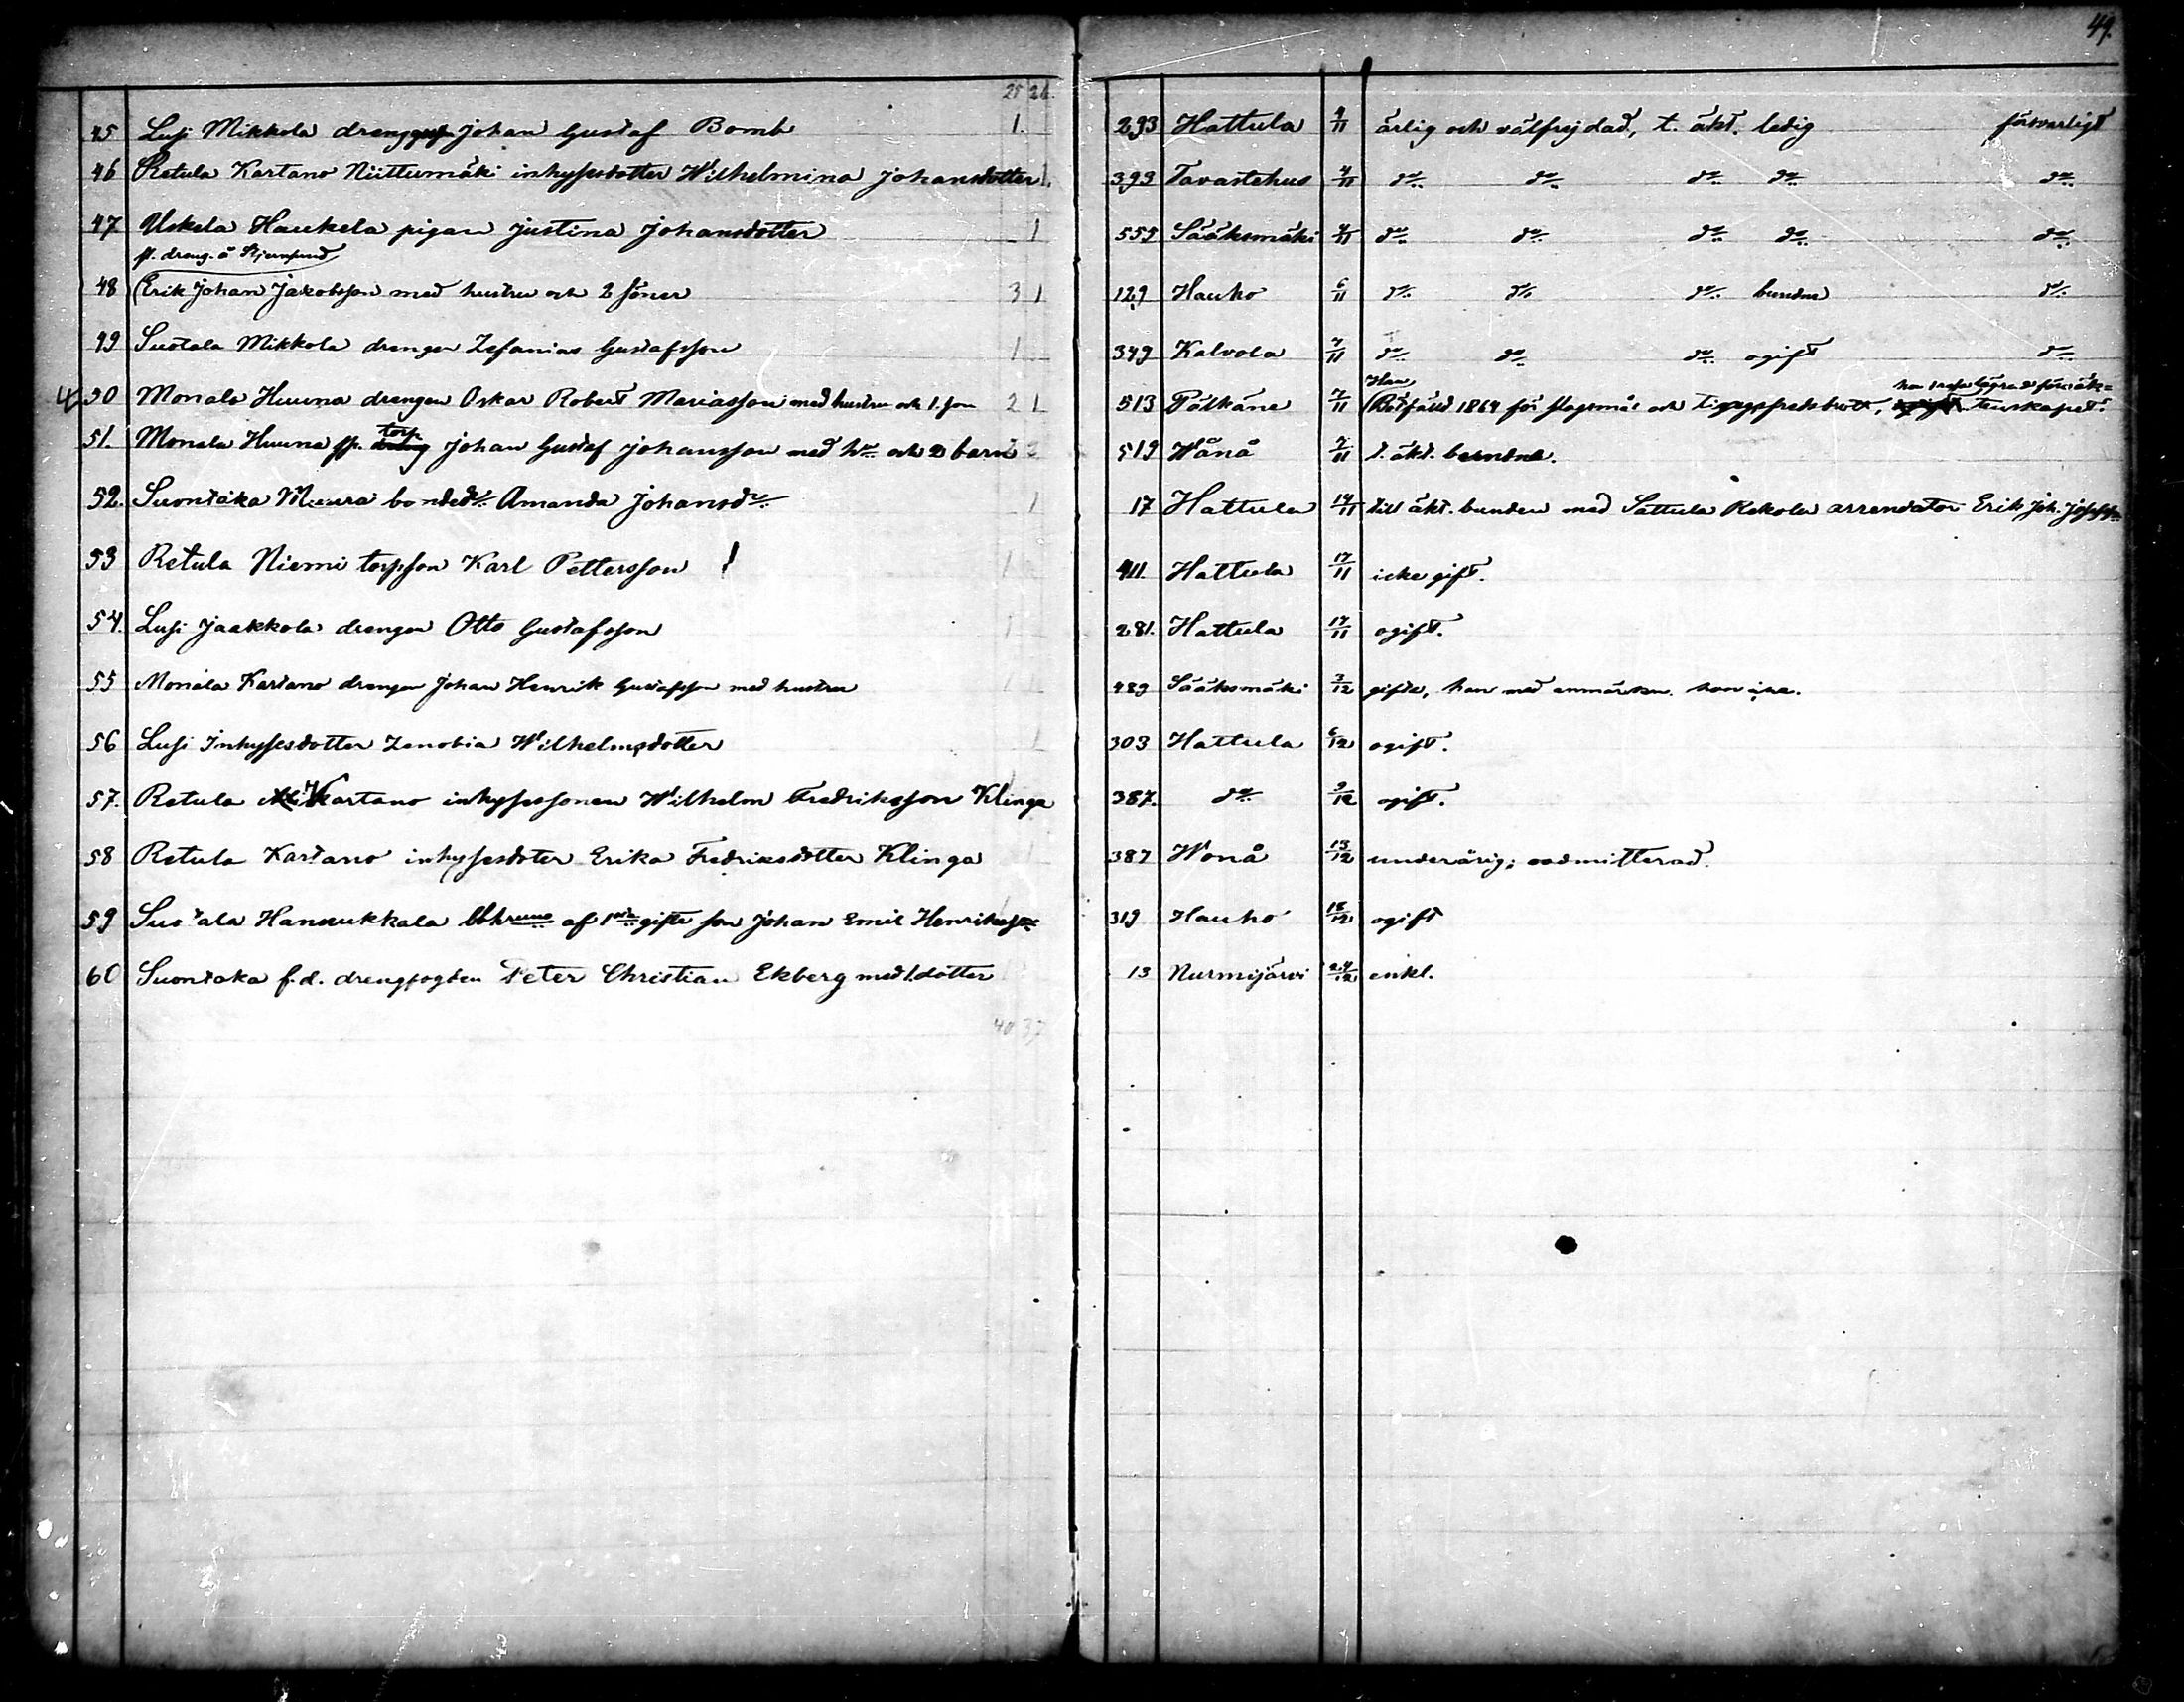 49.
25 26.
45 Lusi Mikkola dreng Johan Gustaf Bomb 1. 293 Hattula 4/11 ärlig och välfrejdad, t. äkt. ledig försvarligt
46 Retula Kartano Niittumäki inhysesdotter Wilhelmina Johansdotter 1. 393 Tavastehus 4/11 do do do do do
47 Uskela Haukela pigan Justina Johansdotter 1 555 Sääksmäki 4/11 do do do do do
st. dreng. å Stjernsund
48 Erik Johan Jakobsson med hustru och 2 söner 3 1 129 Hauho 6/11 do do do bundne do
49 Suotala Mikkola drengen Zefanias Gustafsson 1 349 Kalvola 7/11 do do do ogift do
Han
50 Monala Huuna drengen Oskar Robert Mariasson med hustru och 1. son 2 1 513 Pälkäne 7/11 Bötfälld 1864 för slagsmål och
torp.
51. Monala Huuna Johan Gustaf Johansson med hu och 2 barn 2 519 Wånå 7/11 t. äkt. bundne.
52. Suontaka Muura bondedr Amanda Johansdr 1 17 Hattula 14/11 till äkt. bunden med Sattula Rekola arrendator Erik Joh.
53 Retula Niemi torpson Karl Pettersson 1 411. Hattula 17/11 icke gift.
54. Lusi Jaakkola drengen Otto Gustafsson 1 281. Hattula 17/11 ogift.
55 Monala Kartano drengen Johan Henrik Gustafsson med hustru 1 1 489 Sääksmäki 3/12 gifte, han med anmärkn. hon icke.
56 Lusi Inhysesdotter Zenobia Wilhelmsdotter 1 303 Hattula 6/12 ogift.
57. Retula Kartano inhysessonen Wilhelm Fredriksson Klinga 387. do 9/12 ogift.
58 Retula Kartano inhysesdoter Erika Fredriksdotter Klinga 1 387 Wonå 13/12 underårig; oadmitterad.
59 Suotala Hanaukkala af 1sta gifte son Johan Emil Henriksson 319 Hauho 18/12 ogift
60 Suontaka f.d. drengfogden Peter Christian Ekberg med 1. dotter 13 Nurmijärvi 24/12 enkl.
40 37